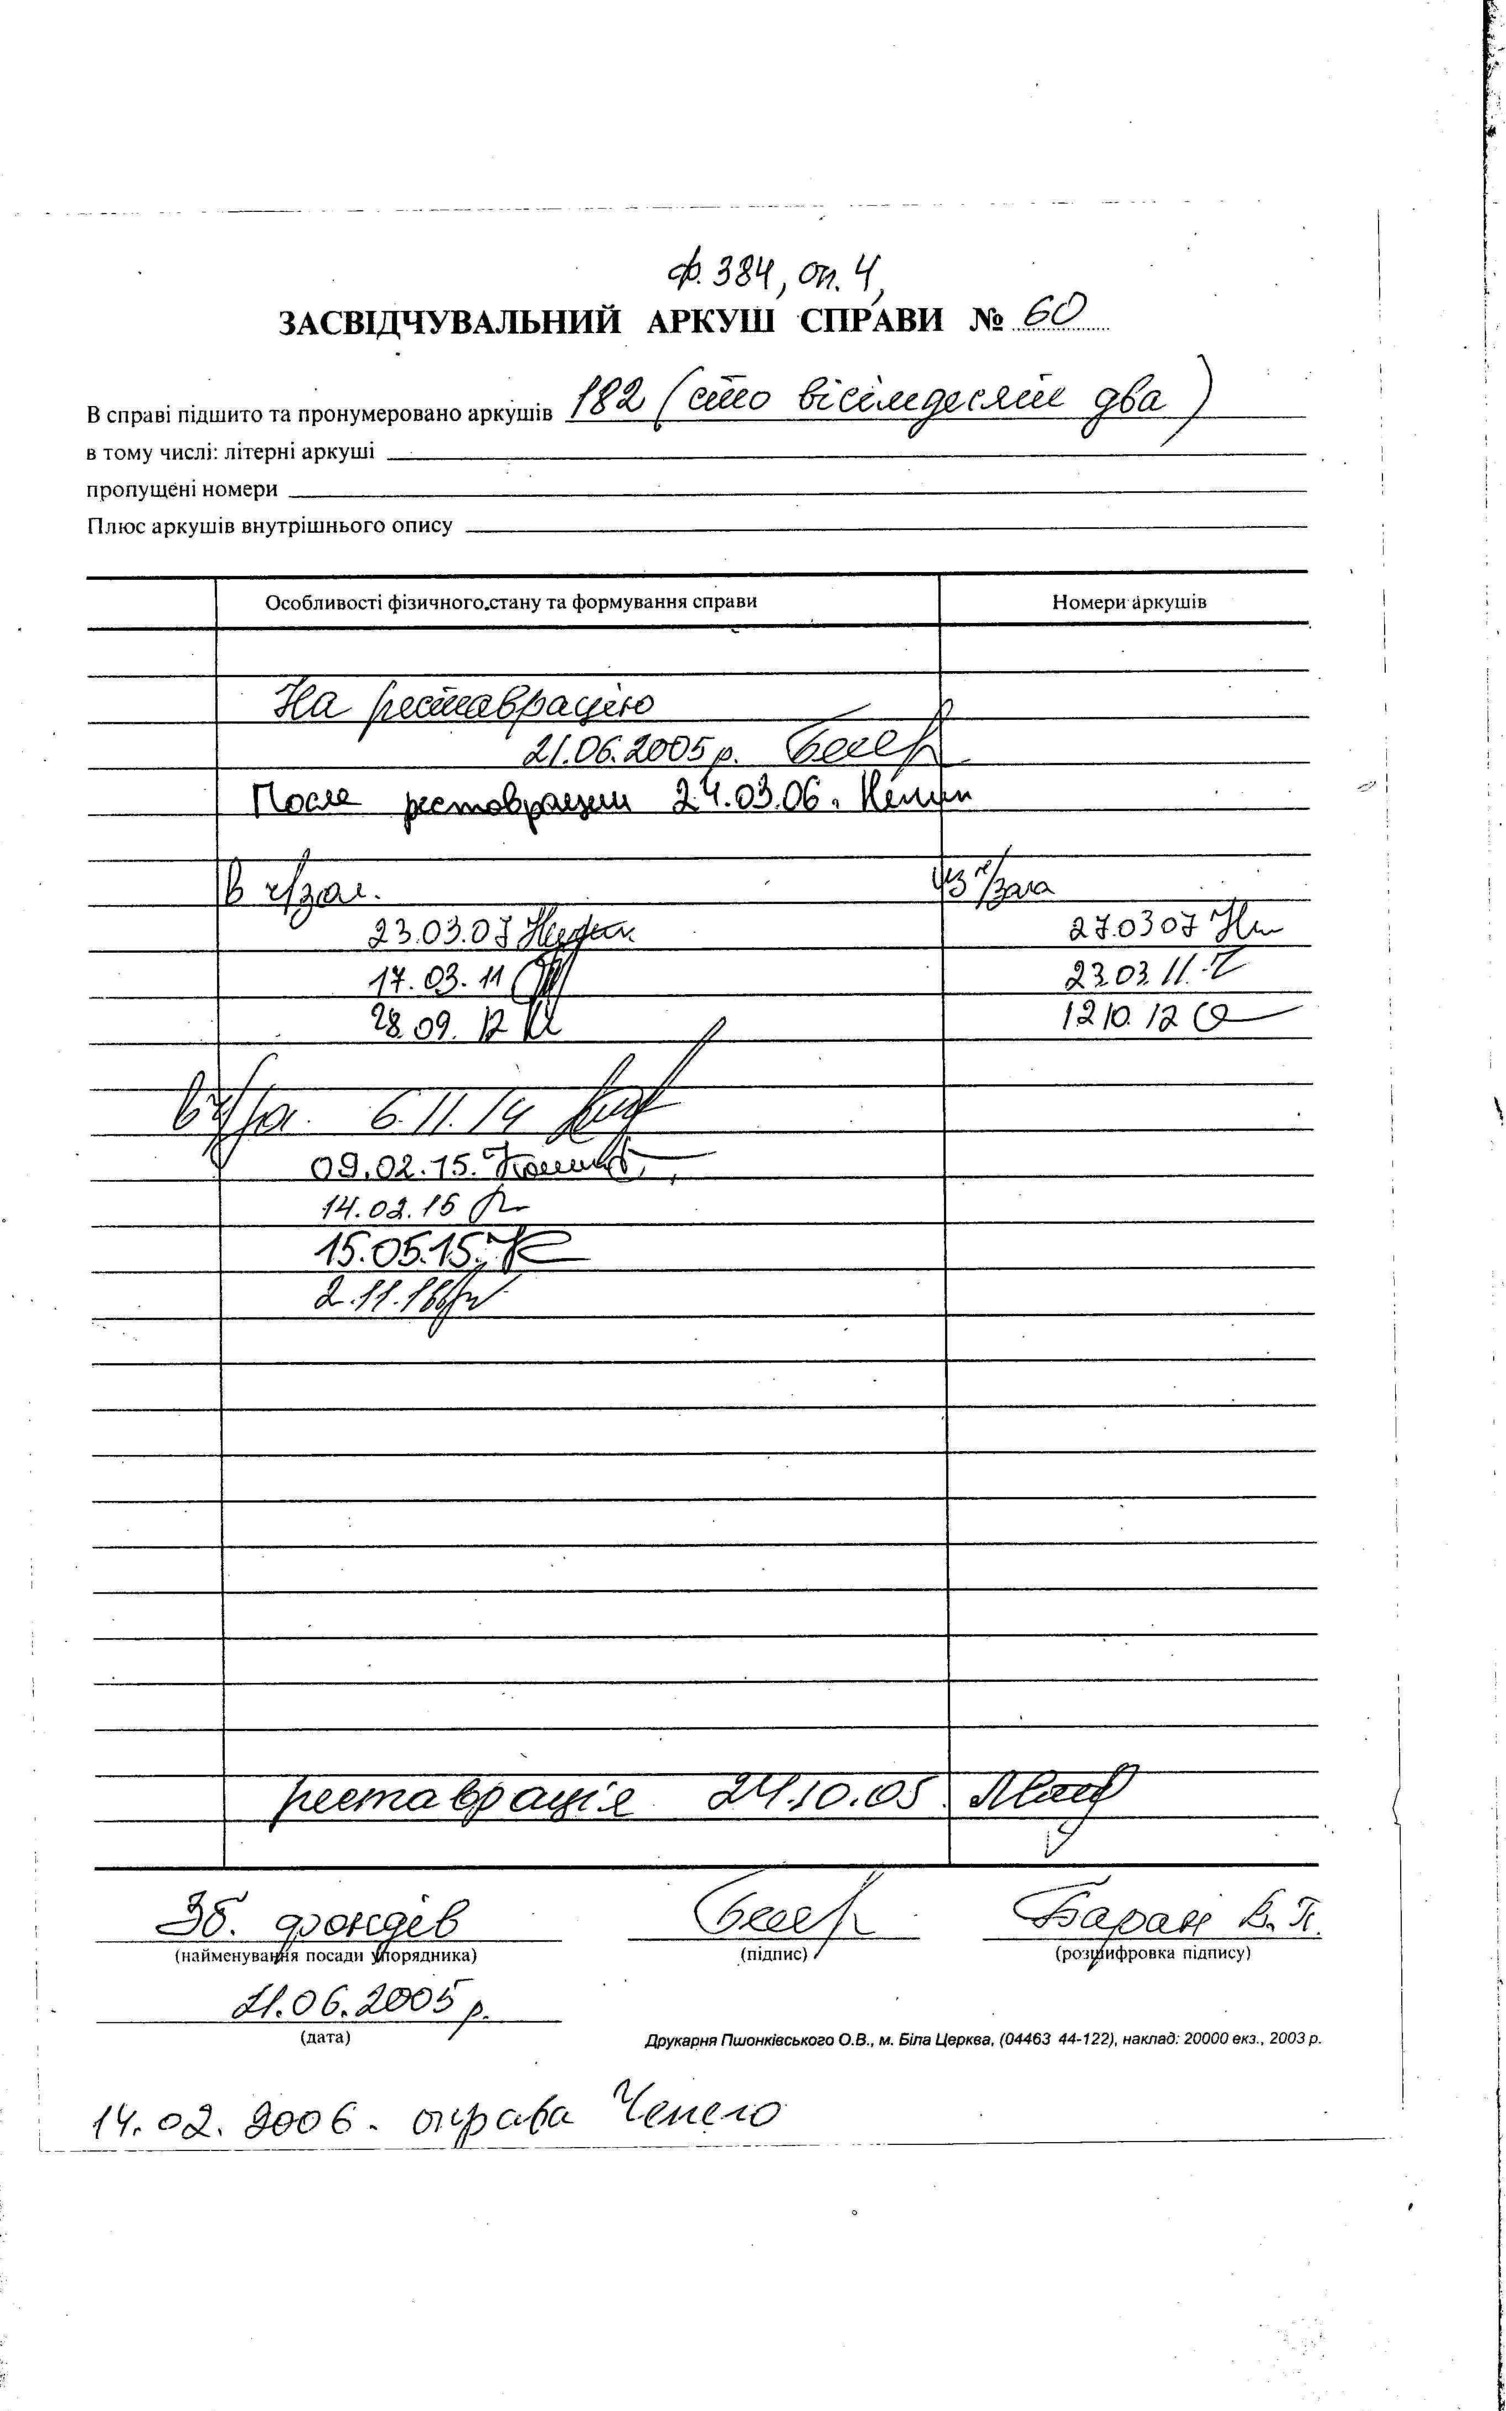 ф. 384, оп. 4,
ЗАСВІДЧУВАЛЬНИЙ АРКУШ СПРАВИ № 60
В справі підшито та пронумеровано аркушів 182 (сто вісімдесят два)
в тому числі: літерні аркуші
пропущені номери
Плюс аркушів внутрішнього опису
Особливості фізичного стану та формування справи Номери аркушів
На реставрацію
21.06.2005 р.
После реставрации 24.03.06.
В ч/зал. Из ч/зала
23.03.07 27.03 07
17.03.11 23.03.11.
28.09.12 12 10.12
В ч/за. 6.11.14
09.02.15.
14.02.15
15.05.15.
2.11.16
реставрація 24.10.05.
Зб. фондів Баран В. П.
(найменування посади упорядника) (підпис) (розшифровка підпису)
21.06.2005 р.
(дата) Друкарня Пшонківського О.В., м. Біла Церква, (04463 44-122), наклад: 20000 екз., 2003 р.
14.02.2006. оправа